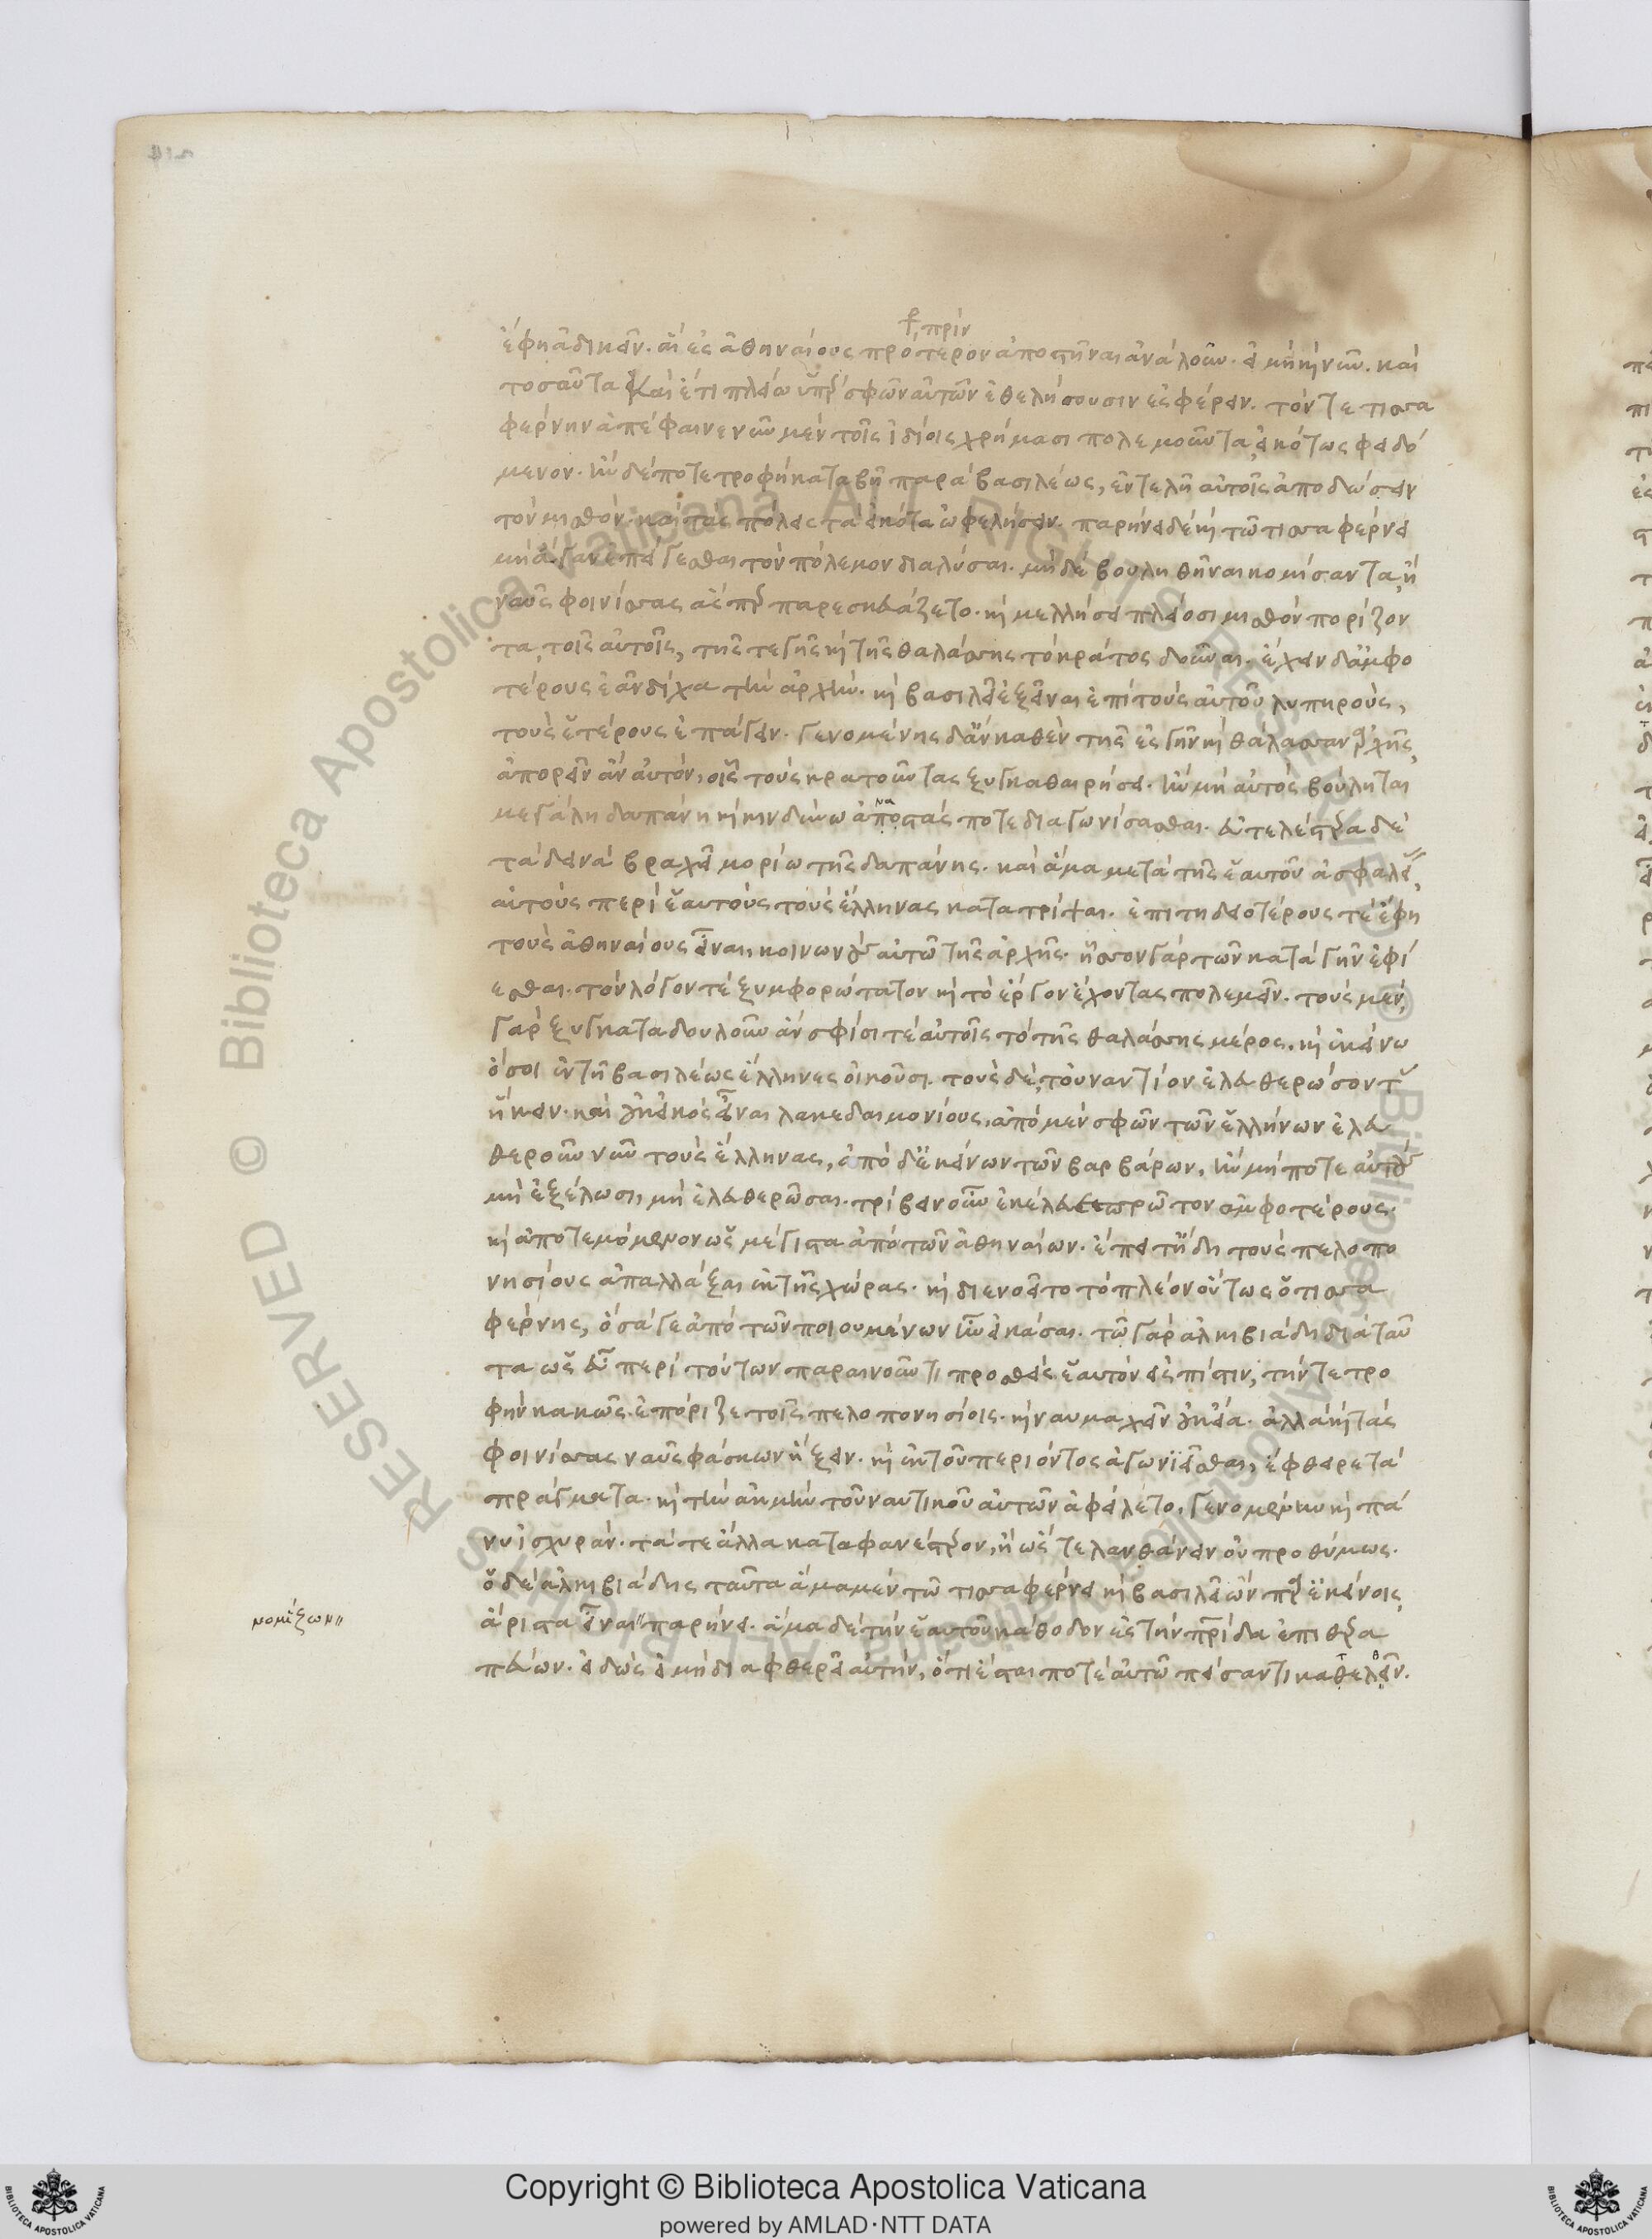 πρίν
ἔφη ἀδικεῖν. αἳ ἐς ἀθηναίους πρότερον ἀποστῆναι ἀνάλουν. εἰ μὴ καὶ νῦν. καὶ
τοσαῦτα καὶ ἔτι πλείω ὑπὲρ σφῶν αὐτῶν ἐθελήσουσιν ἐσφέρειν. τόν τε τισσα
φέρνην ἀπέφαινε νῦν μὲν τοῖς ἰδίοις χρήμασι πολεμοῦντα, εἰκότως φειδό
μενον. ἢν δέ ποτε τροφὴ καταβῇ παρὰ βασιλέως, ἐντελῆ αὐτοῖς ἀποδώσειν
τὸν μισθόν. καὶ τὰς πόλεις τὰ εἰκότα ὠφελήσειν. παρήνει δὲ καὶ τῷ τισσαφέρνει
μὴ ἄγαν ἐπείγεσθαι τὸν πόλεμον διαλῦσαι. μηδὲ βουληθῆναι κομίσαντα, ἢ
ναῦς φοινίσσας ἅσπερ παρεσκευάζετο. καὶ μελλήσει πλείοσι μισθὸν πορίζον
τα, τοῖς αὐτοῖς, τῆς τε γῆς καὶ τῆς θαλάσσης τὸ κράτος δοῦναι. ἔχειν δ' ἀμφο
τέρους ἐᾶν δίχα τὴν ἀρχήν. καὶ βασιλεῖ ἐξεῖναι ἐπὶ τοὺς αὐτοῦ λυπηροὺς,
τοὺς ἑτέρους ἐπάγειν. γενομένης δ' ἂν καθ' ἓν τῆς ἐς γῆν καὶ θάλασσαν ἀρχῆς,
ἀπορεῖν ἂν αὐτὸν, οἷς τοὺς κρατοῦντας ξυγκαθαιρήσει. ἢν μὴ αὐτὸς βούληται
μεγάλῃ δαπάνῃ καὶ κινδύνῳ ἀναστάς ποτε διαγωνίσασθαι. εὐτελέστερα δὲ
τὰ δεινὰ βραχεῖ μορίῳ τῆς δαπάνης. καὶ ἅμα μετὰ τῆς ἑαυτοῦ ἀσφαλείας,
αὐτοὺς περὶ ἑαυτοὺς τοὺς ἕλληνας κατατρῖψαι. ἐπιτηδειοτέρους τὲ ἔφη
τοὺς ἀθηναίους εἶναι, κοινωνοὺς αὐτῷ τῆς ἀρχῆς. ἧσσον γὰρ τῶν κατὰ γῆν ἐφί
εσθαι. τὸν λόγον τὲ ξυμφορώτατον καὶ τὸ ἔργον ἔχοντας πολεμεῖν. τοὺς μὲν,
γὰρ ξυγκαταδουλοῦν ἂν σφίσι τὲ αὐτοῖς τὸ τῆς θαλάσσης μέρος. καὶ ἐκείνῳ
ὅσοι ἐν τῇ βασιλέως ἕλληνες οἰκοῦσι. τοὺς δὲ, τοὐναντίον ἐλευθερώσοντας
ἥκειν. καὶ οὐκ εἰκὸς εἶναι λακεδαιμονίους, ἀπὸ μὲν σφῶν τῶν ἑλλήνων ἐλευ
θεροῦν νῦν τοὺς ἕλληνας, ἀπὸ δ' ἐκείνων τῶν βαρβάρων, ἢν μή ποτε αὐτοὺς
μὴ ἐξέλωσι, μὴ ἐλευθερῶσαι. τρίβειν οὖν ἐκέλευε πρῶτον ἀμφοτέρους.
καὶ ἀποτεμόμενον ὡς μέγιστα ἀπὸ τῶν ἀθηναίων. ἔπειτ' ἤδη τοὺς πελοπο
νησίους ἀπαλλάξαι ἐκ τῆς χώρας. καὶ διενοεῖτο τὸ πλέον οὕτως ὁ τισσα
φέρνης, ὅσά γε ἀπὸ τῶν ποιουμένων ἦν εἰκάσαι. τῷ γὰρ ἀλκιβιάδῃ διὰ ταῦ
τα ὡς εὖ περὶ τούτων παραινοῦντι προσθεὶς ἑαυτὸν ἐς πίστιν, τήν τε τρο
φὴν κακῶς ἐπόριζε τοῖς πελοπονησίοις. καὶ ναυμαχεῖν οὐκ εἴα. ἀλλὰ καὶ τὰς
φοινίσσας ναῦς φάσκων ἥξειν. καὶ ἐκ τοῦ περιόντος ἀγωνιεῖσθαι, ἔφθειρε τὰ
πράγματα. καὶ τὴν ἀκμὴν τοῦ ναυτικοῦ αὐτῶν ἀφείλετο. γενομένην καὶ πά
νυ ἰσχυράν. τά τε ἄλλα καταφανέστερον, ἢ ὥστε λανθάνειν οὐ προθύμως.
ὁ δὲ ἀλκιβιάδης ταῦτα ἅμα μὲν τῷ τισσαφέρνει καὶ βασιλεῖ ὢν παρ' ἐκείνοις,
νομίζων
ἄριστα εἶναι παρήνει. ἅμα δὲ τὴν ἑαυτοῦ κάθοδον ἐς τὴν πατρίδα ἐπιθερα
πεύων. εἰδὼς εἰ μὴ διαφθερεῖ αὐτήν, ὅτι ἔσται ποτὲ αὐτῷ πείσαντι κατελθεῖν.